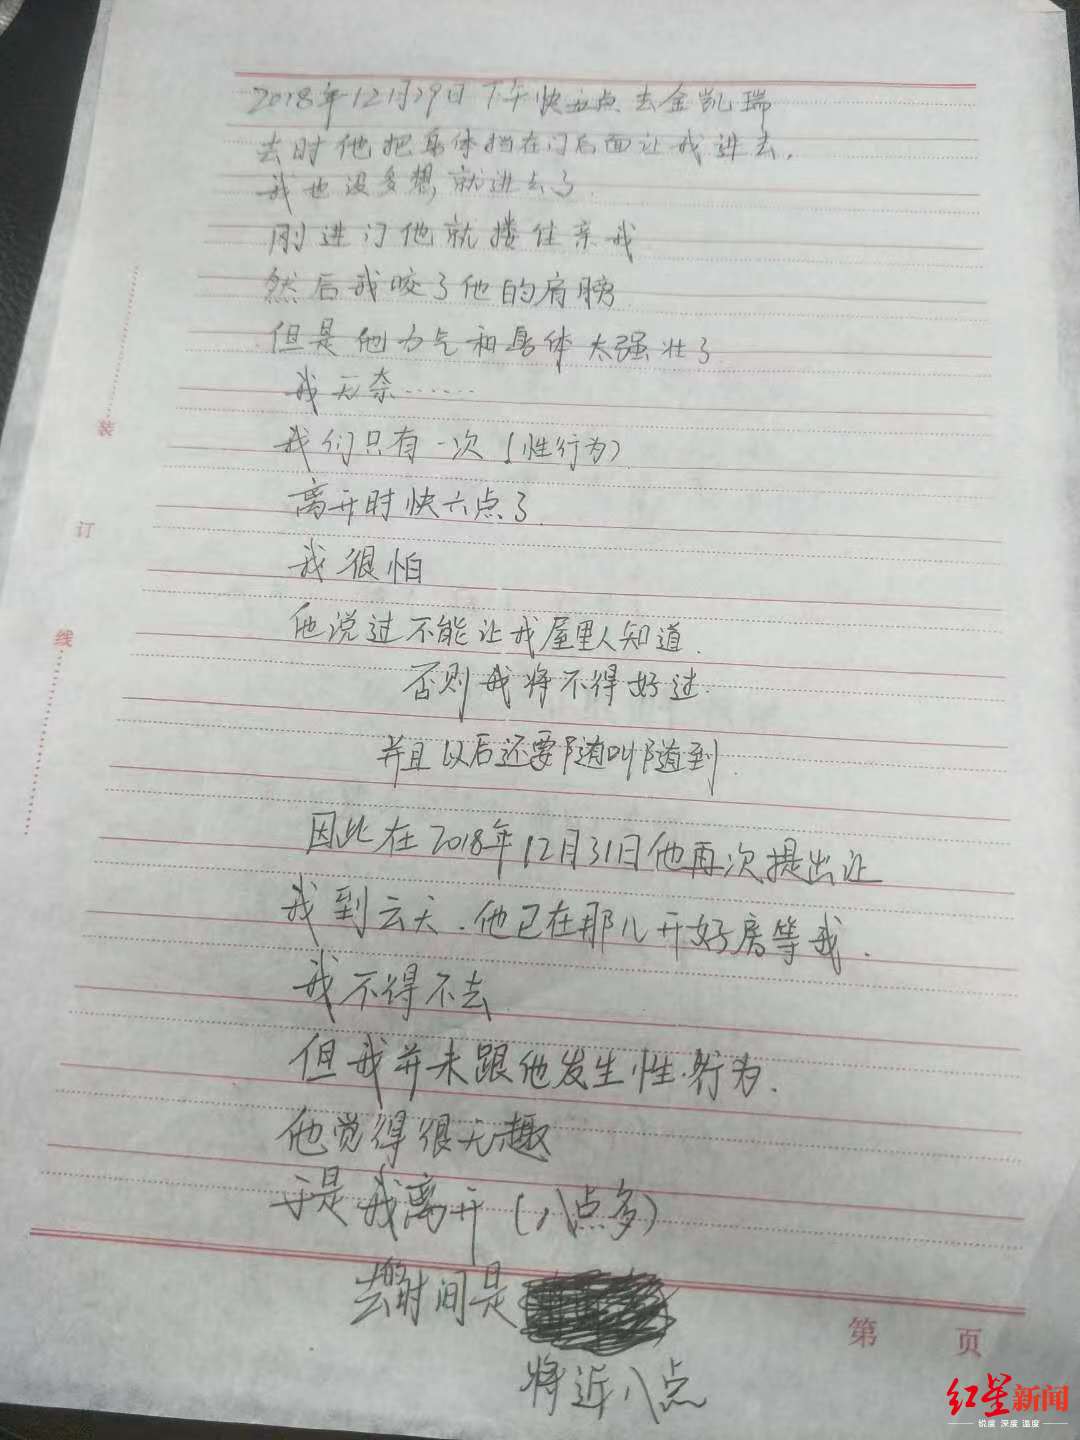 2018年12月29日下午快五点去金凯瑞
去时他把身体挡在门后面让我进去.
我也没多想,就进去了.
刚进门他就搂住亲我
然后我咬了他的肩膀.
但是他力气和身体太强壮了.
我无奈……
我们只有一次(性行为)
离开时快六点了.
我很怕
他说过不能让我屋里人知道.
否则我将不得好过.
并且以后还要随叫随到.
因此在2018年12月31日他再次提出让
我到云天.他已在那儿开好房等我.
我不得不去.
但我并未跟他发生性行为.
他觉得很无趣
于是我离开(八点多)
去的时间是
将近八点
装
订
线
第 页
红星新闻
锐度 深度 温度